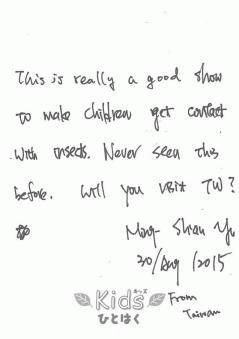 This is really a good show
to make children get contact
with insects. Never seen this
before. Will you visit TW?
Ming-Shian Yu
30/Aug/2015
From
Taiwan
キッズ
Kids
ひとはく